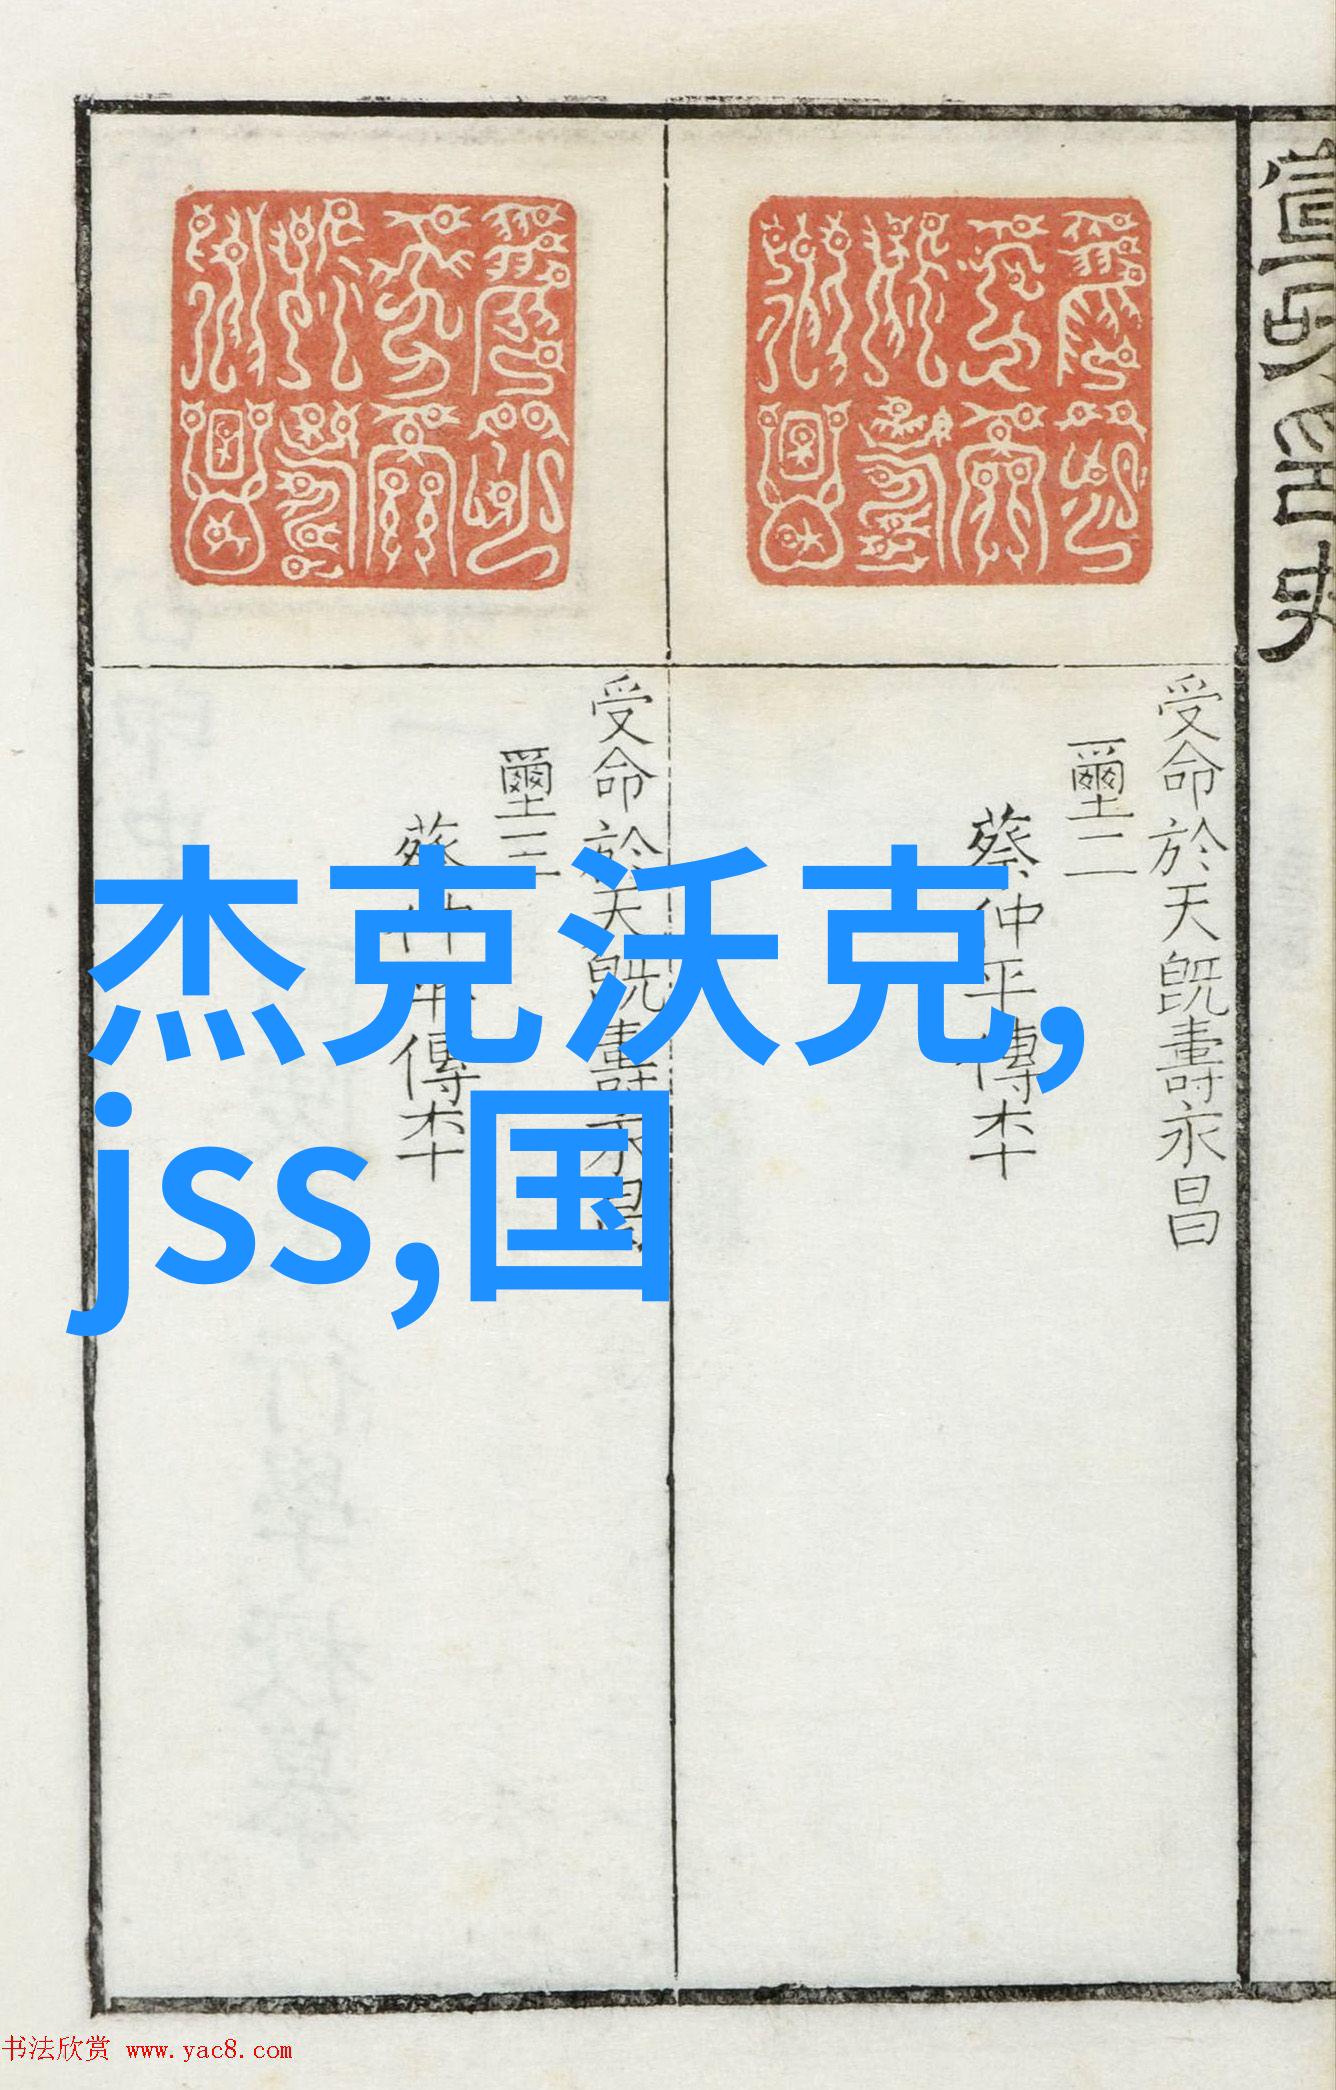 受命於天既壽永昌
璽二
蔡仲平傳本
受命於天既壽永昌
璽三
蔡仲平傳本
杰克沃克,
jss,国
书法欣赏 www.yac8.com